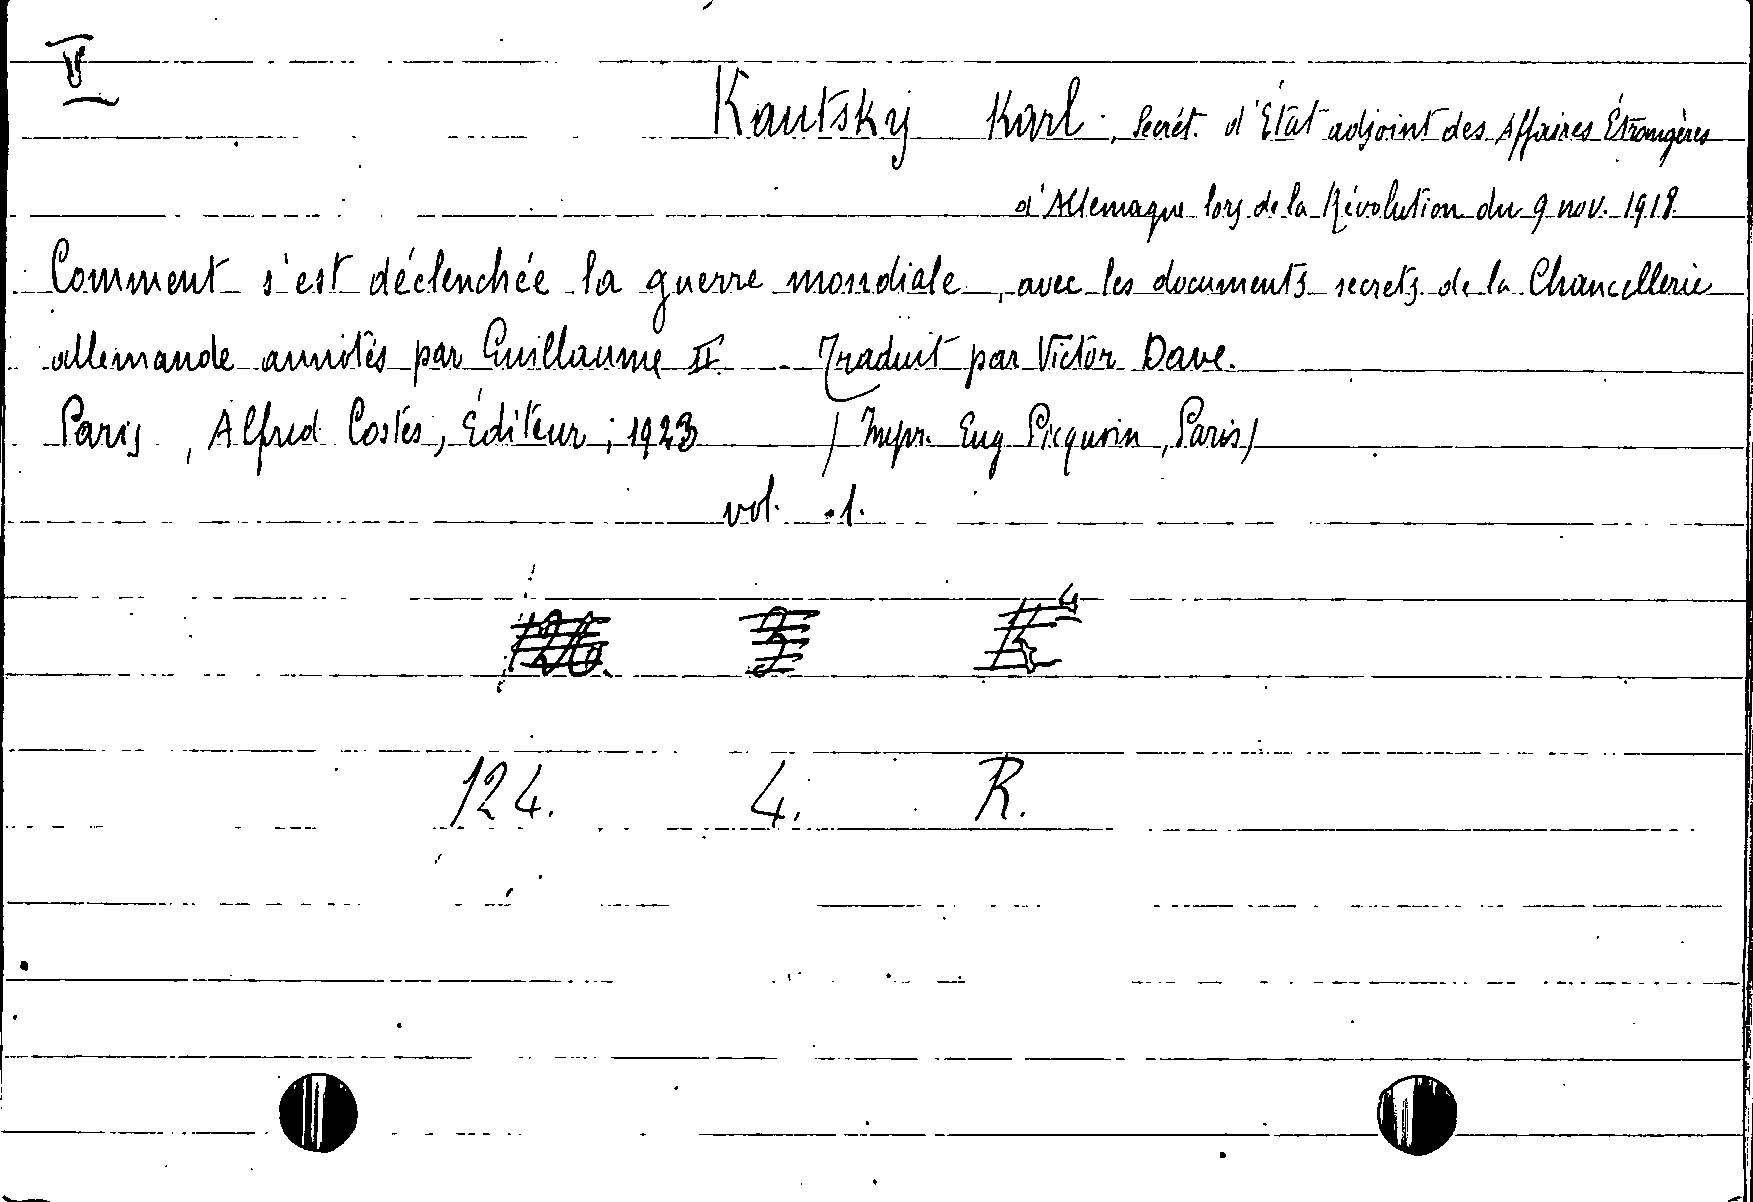 V
Kautsky Karl, Secrét. d'État adjoint des Affaires Étrangères
d'Allemagne lors de la Révolution du 9 nov. 1918.
Comment s'est déclenchée la guerre mondiale, avec les documents secrets de la Chancellerie
allemande annotés par Guillaume II. Traduit par Victor Dave.
Paris, Alfred Costes, Éditeur; 1923 / Impr. Eug Picquoin, Paris/
vol. 1.
124. 4. R.